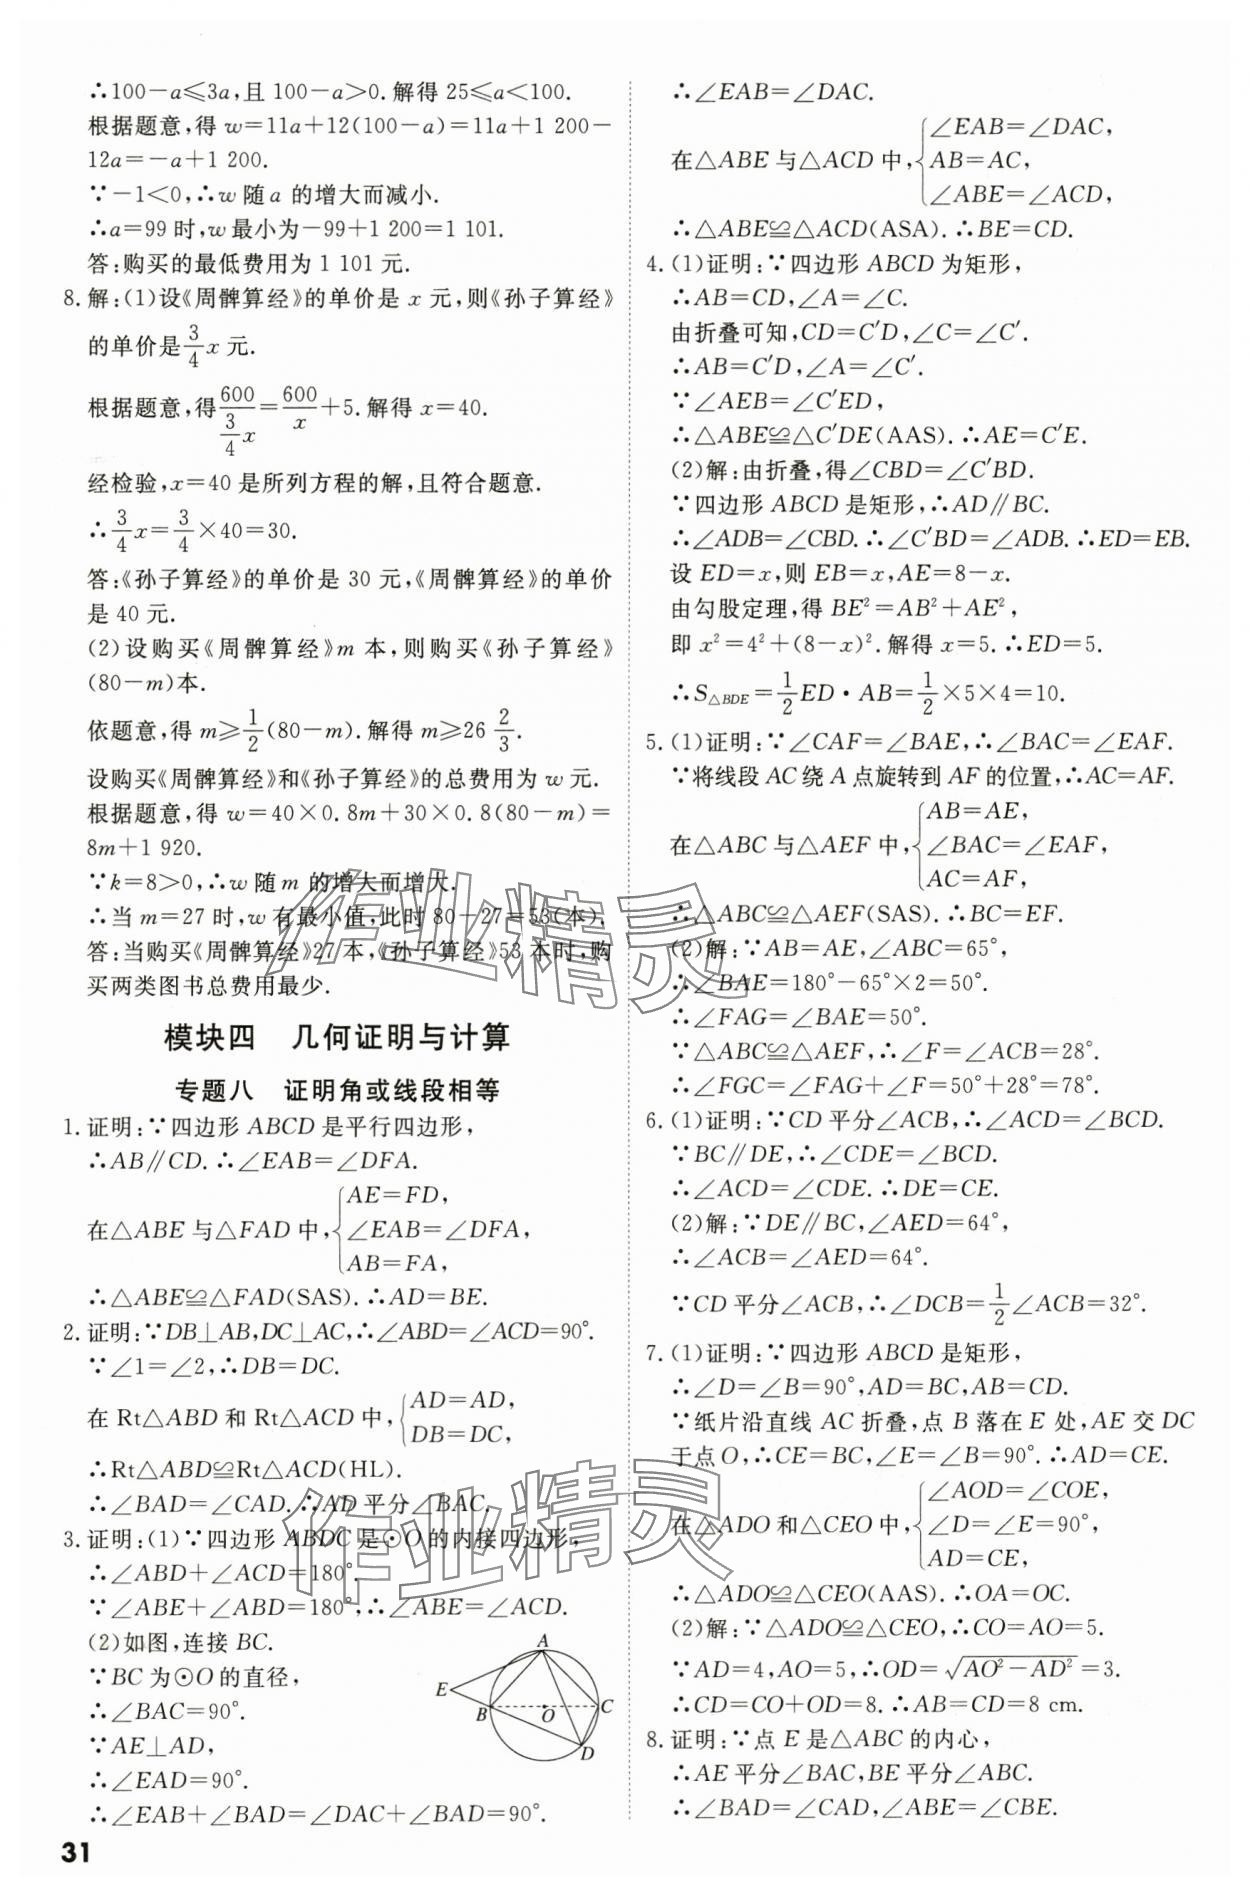 ∴100-a≤3a,且 100-a>0.解得 25≤a<100.
根据题意,得 w=11a+12(100-a)=11a+1 200-
12a=-a+1 200.
∵-1<0,∴w 随 a 的增大而减小.
∴a=99 时,w 最小为-99+1 200=1 101.
答:购买的最低费用为 1 101 元.
8.解:(1)设《周髀算经》的单价是 x 元,则《孙子算经》
的单价是3/4x 元.
根据题意,得600/(3/4x)=600/x+5.解得 x=40.
经检验,x=40 是所列方程的解,且符合题意.
∴3/4x=3/4×40=30.
答:《孙子算经》的单价是 30 元,《周髀算经》的单价
是 40 元.
(2)设购买《周髀算经》m 本,则购买《孙子算经》
(80-m)本.
依题意,得 m≥1/2(80-m).解得 m≥26 2/3.
设购买《周髀算经》和《孙子算经》的总费用为 w 元.
根据题意,得 w=40×0.8m+30×0.8(80-m)=
8m+1 920.
∵k=8>0,∴w 随 m 的增大而增大.
∴当 m=27 时,w 有最小值,此时 80-27=53(本).
答:当购买《周髀算经》27 本,《孙子算经》53 本时,购
买两类图书总费用最少.
模块四 几何证明与计算
专题八 证明角或线段相等
1.证明:∵四边形 ABCD 是平行四边形,
∴AB∥CD.∴∠EAB=∠DFA.
在△ABE 与△FAD 中,{AE=FD,
∠EAB=∠DFA,
AB=FA,
∴△ABE≌△FAD(SAS).∴AD=BE.
2.证明:∵DB⊥AB,DC⊥AC,∴∠ABD=∠ACD=90°.
∵∠1=∠2,∴DB=DC.
在 Rt△ABD 和 Rt△ACD 中,{AD=AD,
DB=DC,
∴Rt△ABD≌Rt△ACD(HL).
∴∠BAD=∠CAD.∴AD 平分∠BAC.
3.证明:(1)∵四边形 ABDC 是⊙O 的内接四边形,
∴∠ABD+∠ACD=180°.
∵∠ABE+∠ABD=180°,∴∠ABE=∠ACD.
(2)如图,连接 BC.
∵BC 为⊙O 的直径,
∴∠BAC=90°.
∵AE⊥AD,
∴∠EAD=90°.
∴∠EAB+∠BAD=∠DAC+∠BAD=90°.
A
E
B
O
C
D
31
∴∠EAB=∠DAC.
在△ABE 与△ACD 中,{∠EAB=∠DAC,
AB=AC,
∠ABE=∠ACD,
∴△ABE≌△ACD(ASA).∴BE=CD.
4.(1)证明:∵四边形 ABCD 为矩形,
∴AB=CD,∠A=∠C.
由折叠可知,CD=C′D,∠C=∠C′.
∴AB=C′D,∠A=∠C′.
∵∠AEB=∠C′ED,
∴△ABE≌△C′DE(AAS).∴AE=C′E.
(2)解:由折叠,得∠CBD=∠C′BD.
∵四边形 ABCD 是矩形,∴AD∥BC.
∴∠ADB=∠CBD.∴∠C′BD=∠ADB.∴ED=EB.
设 ED=x,则 EB=x,AE=8-x.
由勾股定理,得 BE²=AB²+AE²,
即 x²=4²+(8-x)².解得 x=5.∴ED=5.
∴S△BDE=1/2ED·AB=1/2×5×4=10.
5.(1)证明:∵∠CAF=∠BAE,∴∠BAC=∠EAF.
∵将线段 AC 绕 A 点旋转到 AF 的位置,∴AC=AF.
在△ABC 与△AEF 中,{AB=AE,
∠BAC=∠EAF,
AC=AF,
∴△ABC≌△AEF(SAS).∴BC=EF.
(2)解:∵AB=AE,∠ABC=65°,
∴∠BAE=180°-65°×2=50°.
∴∠FAG=∠BAE=50°.
∵△ABC≌△AEF,∴∠F=∠ACB=28°.
∴∠FGC=∠FAG+∠F=50°+28°=78°.
6.(1)证明:∵CD 平分∠ACB,∴∠ACD=∠BCD.
∵BC∥DE,∴∠CDE=∠BCD.
∴∠ACD=∠CDE.∴DE=CE.
(2)解:∵DE∥BC,∠AED=64°,
∴∠ACB=∠AED=64°.
∵CD 平分∠ACB,∴∠DCB=1/2∠ACB=32°.
7.(1)证明:∵四边形 ABCD 是矩形,
∴∠D=∠B=90°,AD=BC,AB=CD.
∵纸片沿直线 AC 折叠,点 B 落在 E 处,AE 交 DC
于点 O,∴CE=BC,∠E=∠B=90°.∴AD=CE.
在△ADO 和△CEO 中,{∠AOD=∠COE,
∠D=∠E=90°,
AD=CE,
∴△ADO≌△CEO(AAS).∴OA=OC.
(2)解:∵△ADO≌△CEO,∴CO=AO=5.
∵AD=4,AO=5,∴OD=√(AO²-AD²)=3.
∴CD=CO+OD=8.∴AB=CD=8 cm.
8.证明:∵点 E 是△ABC 的内心,
∴AE 平分∠BAC,BE 平分∠ABC.
∴∠BAD=∠CAD,∠ABE=∠CBE.
作业精灵
作业精灵